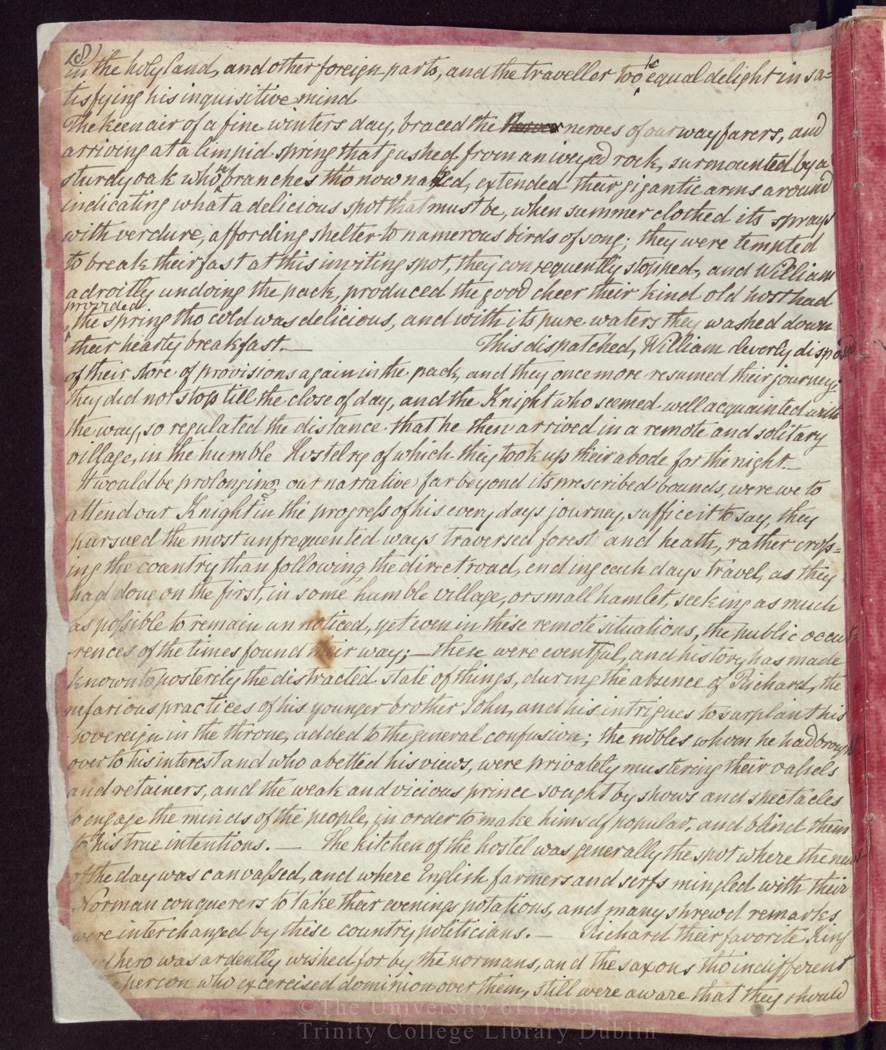 (8)
in the holy land, and other foreign parts, and the traveller too equal delight in sa=
tisfying his inquisitive mind
The keen air of a fine winters day, braced the nerves of our wayfarers, and
arriving at a limpid spring that gushed from an iveyed rock, surmounted by a
sturdy oak whose branches tho now naked, extended their gigantic arms around
indicating what a delicious spot that must be, when summer clothed its sprays
with verdure, affording shelter to numerous birds of song; they were tempted
to break their fast at this inviting spot, they consequently stopped, and William
adroitly undoing the pack, produced the good cheer their kind old host had
provided
the spring tho cold was delicious, and with its pure waters they washed down
their hearty breakfast.— This dispatched, William cleverly dispos
of their store of provisions again in the pack, and they once more resumed their journey;
they did not stop till the close of day, and the Knight who seemed well acquainted with
the way, so regulated the distance that he then arrived in a remote and solitary
village, in the humble Hostelry of which they took up their abode for the night.—
It would be prolonging our narrative far beyond its prescribed bounds, were we to
attend our Knight in the progress of his every days journey, suffice it to say, they
pursued the most unfrequented ways traversed forest and heath, rather cross=
ing the country than following the direct road, ending each days travel, as they
had done on the first, in some humble village, or small hamlet, seeking as much
as possible to remain unnoticed, yet even in these remote situations, the public occur=
rences of the times found their way; — these were eventful, and history has made
known to posterity the distracted state of things, during the absence of Richard, the
nefarious practices of his younger brother John, and his intrigues to surplant his
sovereign in the throne, added to the general confusion; the nobles whom he had brought
over to his interest and who abetted his views, were privately mustering their vassels
and retainers, and the weak and vicious prince sought by shows and spectacles
to engage the minds of the people, in order to make himself popular, and blind them
to his true intentions. — The kitchen of the hostel was generally the spot where the news
of the day was canvassed, and where English farmers and serfs mingled with their
Norman conquerers to take their evenings potations, and many shrewd remarks
were interchanged by these country politicians. — Richard their favorite King
hero was ardently wished for by the normans, and the saxons tho indifferent
person who excercised dominion over them, still were aware that they should
©The University of Dublin
Trinity College Library Dublin